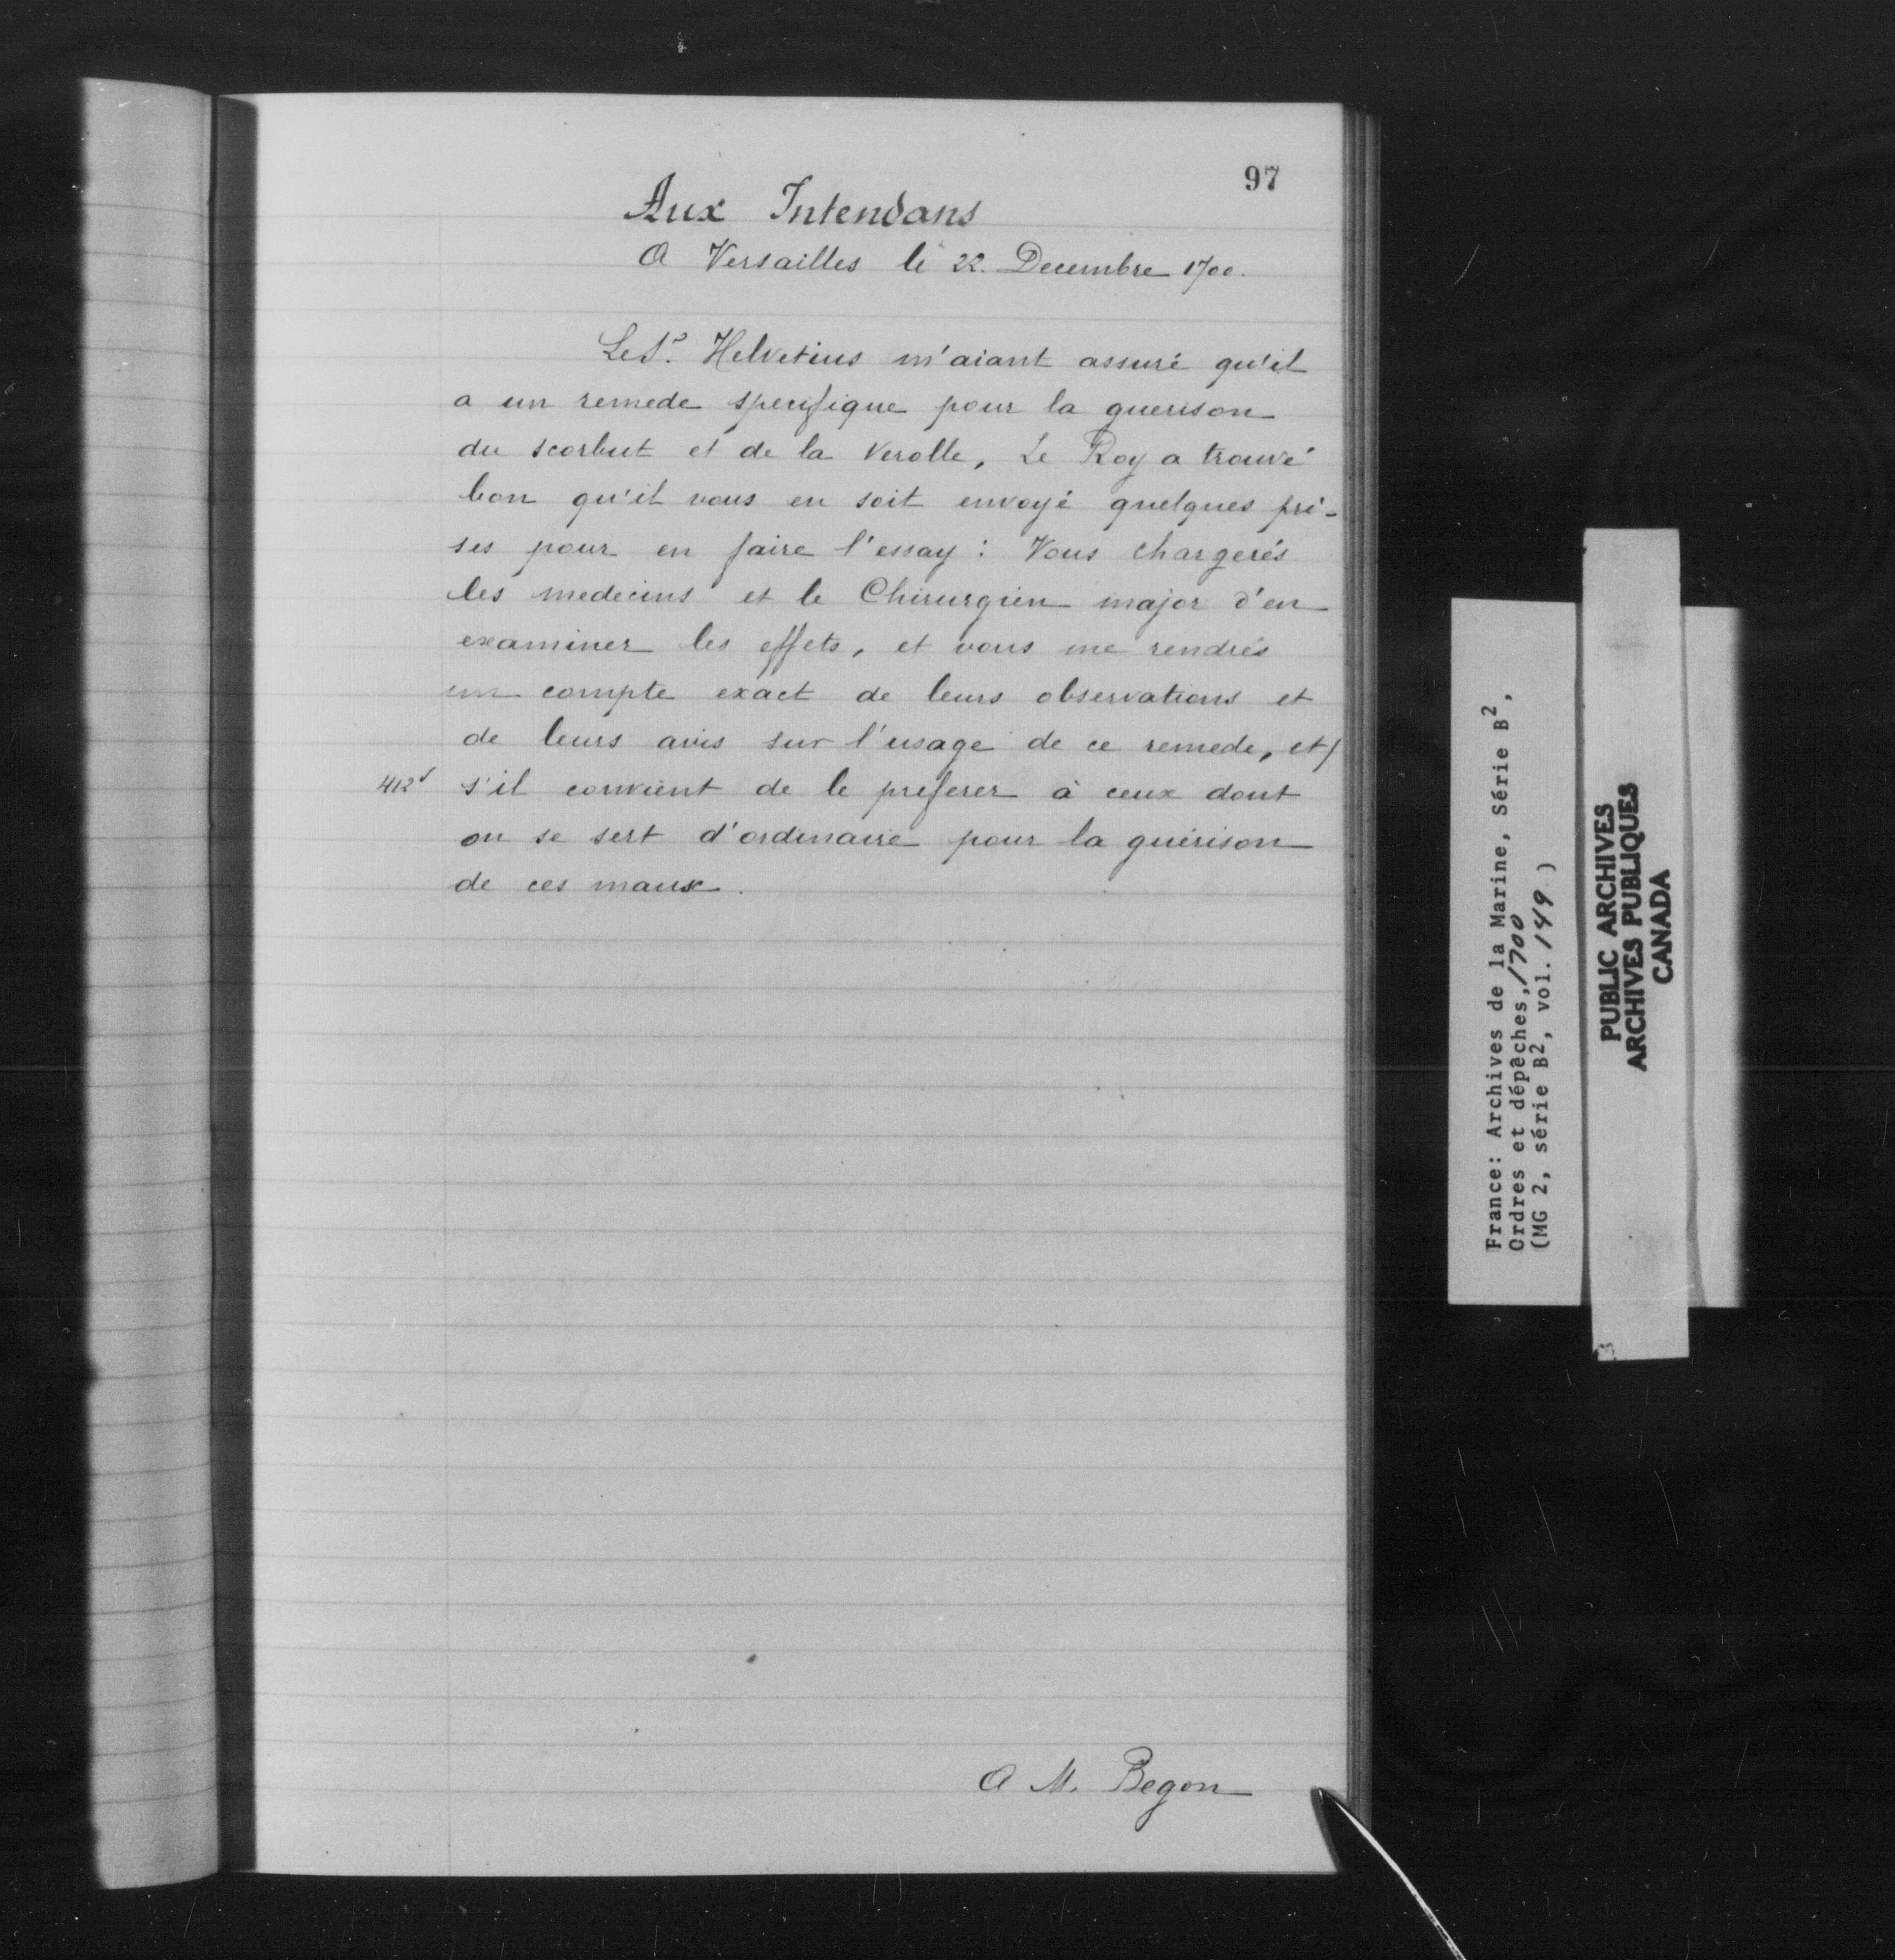 97
Aux Intendans
A Versailles le 22. Decembre 1700.
Le Sr. Helvetius m'aiant assuré qu'il
a un remede specifique pour la guerison
du scorbut et de la Verolle, Le Roy a trouvé
bon qu'il vous en soit envoyé quelques pri-
ses pour en faire l'essay : Vous chargerés
les medecins et le Chirurgien major d'en
examiner les effets, et vous me rendrés
un compte exact de leurs observations et
de leurs avis sur l'usage de ce remede, et/
412v s'il convient de le preferer à ceux dont
on se sert d'ordinaire pour la guérison
de ces maux.
A M. Begon
France: Archives de la Marine, Série B2,
Ordres et dépêches, 1700
(MG 2, série B2, vol. 149 )
PUBLIC ARCHIVES
ARCHIVES PUBLIQUES
CANADA